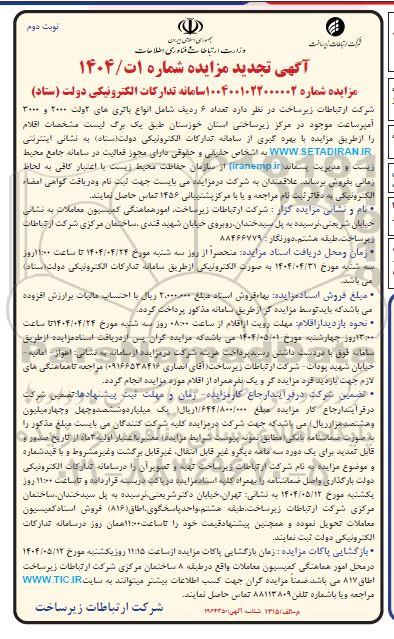 نوبت دوم
جمهوری اسلامی ایران
وزارت ارتباطات و فناوری اطلاعات
شرکت ارتباطات زیرساخت
آگهی تجدید مزایده شماره ۱ت/۱۴۰۴
مزایده شماره ۱۰۰۴۰۰۱۰۲۲۰۰۰۰۰۲سامانه تدارکات الکترونیکی دولت (ستاد)
شرکت ارتباطات زیرساخت در نظر دارد تعداد ۶ ردیف شامل انواع باتری های ۲ولت ۲۰۰۰ و ۳۰۰۰
آمپرساعت موجود در مرکز زیرساختی استان خوزستان طبق یک برگ لیست مشخصات اقلام
را ازطریق مزایده با بهره گیری از سامانه تدارکات الکترونیکی دولت(ستاد) به نشانی اینترنتی
WWW.SETADIRAN.IR به اشخاص حقیقی و حقوقی دارای مجوز فعالیت در سامانه جامع محیط
زیست و مدیریت پسماند(iranemp.ir) از سازمان حفاظت محیط زیست با اعتبار کافی به لحاظ
زمانی بفروش برساند. علاقمندان به شرکت درمزایده می بایست جهت ثبت نام ودریافت گواهی امضاء
الکترونیکی به دفاترثبت نام مراجعه و یا با مرکزپشتیبانی ۱۴۵۶ تماس حاصل نمایند.
• نام و نشانی مزایده گزار : شرکت ارتباطات زیرساخت، امورهماهنگی کمیسیون معاملات به نشانی
خیابان شریعتی،نرسیده به پل سیدخندان،روبروی خیابان شهید قندی ،ساختمان مرکزی شرکت ارتباطات
زیرساخت،طبقه هشتم،دورنگار: ۸۸۴۶۶۷۷۹
• زمان ومحل دریافت اسناد مزایده: منحصراً از روز سه شنبه مورخ ۱۴۰۴/۰۴/۲۴ تا ساعت ۱۱:۰۰روز
سه شنبه مورخ ۱۴۰۴/۰۴/۳۱ به صورت الکترونیکی ازطریق سامانه تدارکات الکترونیکی دولت(ستاد)
می باشد.
• مبلغ فروش اسنادمزایده: بهاءفروش اسناد مبلغ ۲،۰۰۰،۰۰۰ ریال با احتساب مالیات برارزش افزوده
می باشدکه بایدتوسط مزایده گر ازطریق سامانه مذکور پرداخت گردد.
• نحوه بازدیدازاقلام: مهلت رویت ازاقلام از ساعت ۰۸:۰۰ روز سه شنبه مورخ ۱۴۰۴/۰۴/۲۴تا ساعت
۱۳:۰۰روز چهارشنبه مورخ ۱۴۰۴/۰۵/۰۱ می باشدکه مزایده گران پس ازدریافت اسنادمزایده ازطریق
سامانه فوق با دردست داشتن رسیدپرداخت هزینه شرکت درمزایده ازسامانه به نشانی: اهواز- امانیه -
خیابان شهید پودات - شرکت ارتباطات زیرساخت(آقای انصاری ۰۹۱۶۶۵۳۸۴۱۶) مراجعه تاهماهنگی های
لازم جهت بازدید فرد مزایده گر و یک نفرهمراه از اقلام مورد مزایده انجام گردد.
• تضمین شرکت درفرآیندارجاع کارمزایده- زمان و مهلت ثبت پیشنهادها:تضمین شرکت
درفرآیندارجاع کار مزایده مبلغ ۱/۶۴۴/۸۰۰/۰۰۰ریال( یک میلیاردوششصدوچهل وچهارمیلیون
وهشتصدهزارریال) می باشدکه جهت شرکت درمزایده کلیه شرکت کنندگان می بایست مبلغ مذکور را
به صورت ضمانتنامه بانکی(مطابق نمونه پیوست شرایط مزایده) معتبرباعتبار اولیه ۳ماه از تاریخ صدور و
قابل تمدید برای یک دوره سه ماهه دیگر و غیر قابل انتقال، غیرقابل برگشت وغیرمشروط و با قیدشماره
و موضوع مزایده به نام شرکت ارتباطات زیرساخت تهیه و تصویرآن را درسامانه تدارکات الکترونیکی
دولت بارگذاری واصل ضمانتنامه رابهمراه کلیه اسنادمزایده درپاکت دربسته قرارداده و تاساعت ۱۱:۰۰ روز
یکشنبه مورخ ۱۴۰۴/۰۵/۱۲ به نشانی: تهران،خیابان دکترشریعتی،نرسیده به پل سیدخندان،ساختمان
مرکزی شرکت ارتباطات زیرساخت،طبقه هشتم،واحدپاسخگویی،اطاق(۸۱۶) فروش اسنادکمیسیون
معاملات تحویل نموده و همچنین پیشنهادقیمت خود را تاساعت۱۱:۰۰همان روز درسامانه تدارکات
الکترونیکی دولت ثبت نمایند.
• بازگشایی پاکات مزایده : زمان بازگشایی پاکات مزایده ازساعت ۱۱:۱۵ روزیکشنبه مورخ ۱۴۰۴/۰۵/۱۲
درمحل امور هماهنگی کمیسیون معاملات واقع درطبقه ۸ ساختمان مرکزی شرکت ارتباطات زیرساخت
اطاق۸۱۷ می باشد.ضمناً مزایده گران جهت کسب اطلاعات بیشتر میتوانند به سایت WWW.TIC.IR
مراجعه ویا باشماره تلفن۸۸۱۱۳۸۰۹ تماس حاصل نمایند.
م-الف/۱۳۱۵ شناسه آگهی:۱۹۶۴۳۵۰
شرکت ارتباطات زیرساخت